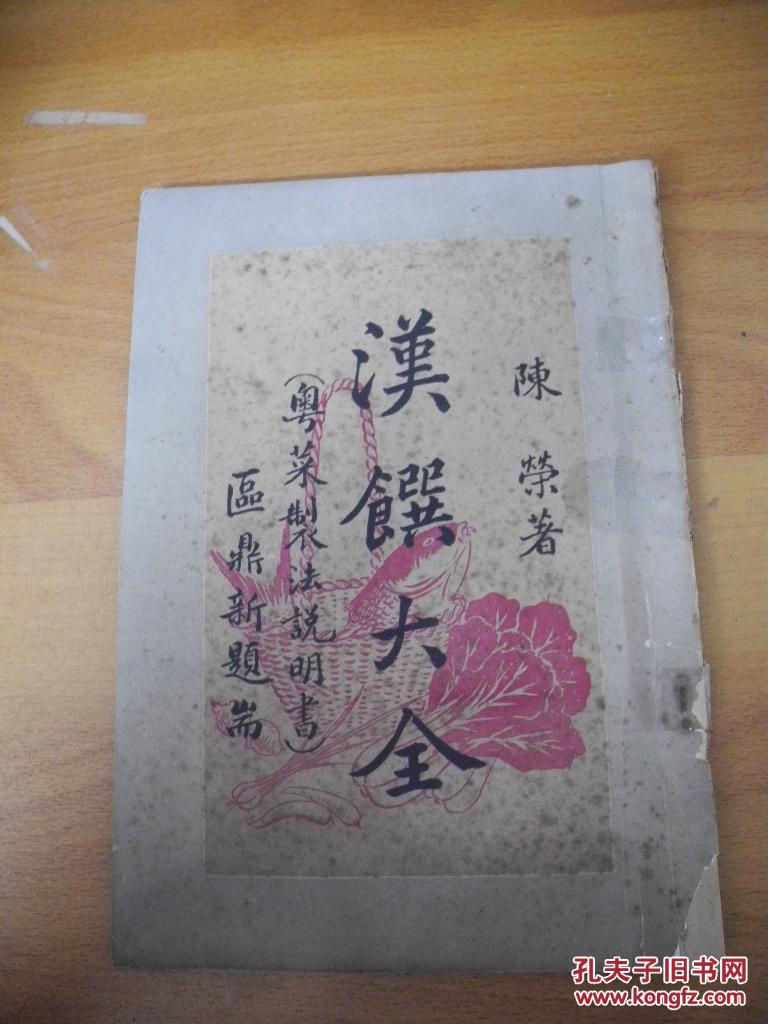 陳榮著
漢饌大全
(粵菜製法説明書)
區鼎新題耑
孔夫子旧书网
www.kongfz.com